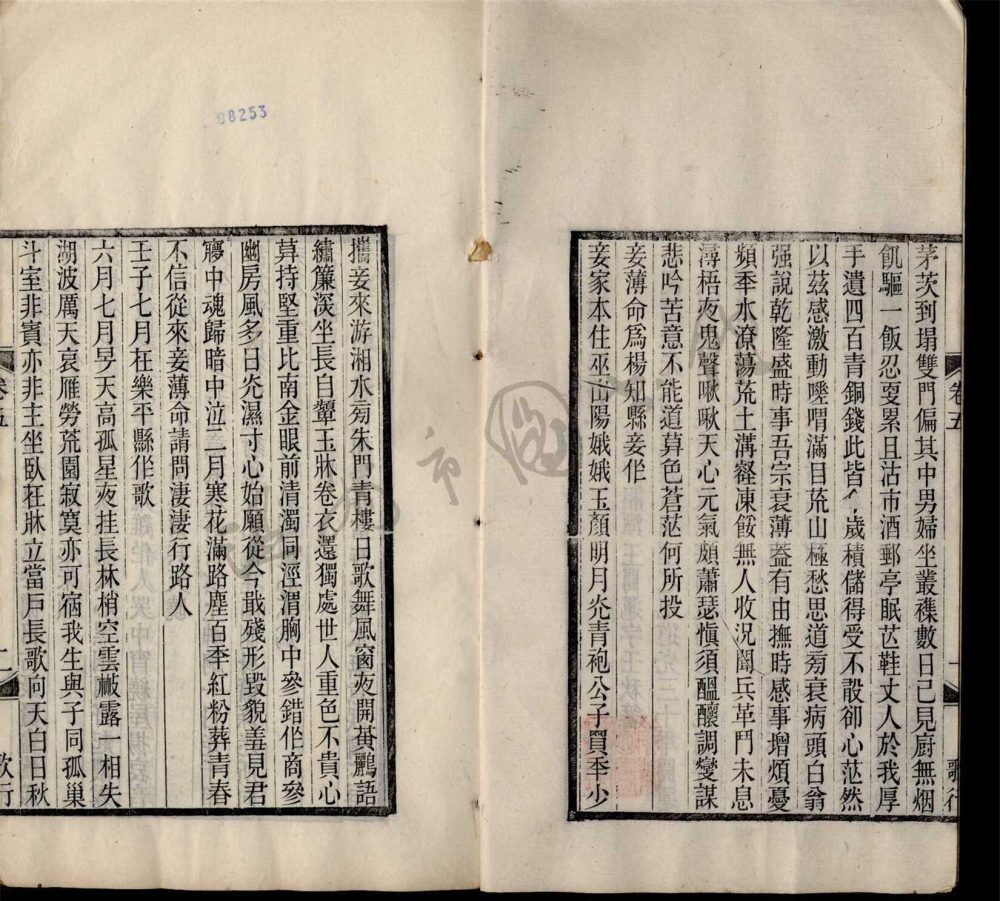 茅茨到塌雙門偏其中男婦坐叢襍數日已見廚無烟
飢驅一飯忍耍累且沽市酒郵亭眠芒鞋丈人於我厚
手遺四百青銅錢此皆 歲積儲得受不敢卻心茫然
以茲感激動嘡喟滿目荒山極愁思道旁衰病頭白翁
强說乾隆盛時事吾宗衰薄葢有由撫時感事增煩憂
頻秊水潦蕩荒土溝壑凍餒無人收況聞兵革鬥未息
潯梧夜鬼聲啾啾天心元氣頗蕭瑟愼須醞釀調燮謀
悲吟苦意不能道莫色蒼茫何所投
妾薄命爲楊知縣妾作
妾家本住巫山陽娥娥玉顏明月光青袍公子買秊少
卷五
歌行
攜妾來游湘水旁朱門青樓日歌舞風窗夜開黃鸝語
繡簾深坐長自顰玉牀卷衣還獨處世人重色不貴心
莫持堅重比南金眼前清濁同涇渭胸中參錯作商參
幽房風多日光濕寸心始願從今戢殘形毀貌羞見君
夢中魂歸暗中泣二月寒花滿路塵百秊紅粉葬青春
不信從來妾薄命請問淒淒行路人
壬子七月在樂平縣作歌
六月七月旻天高孤星夜挂長林梢空雲蔽露一相失
湖波厲天哀雁勞荒園寂寞亦可宿我生與子同孤巢
斗室非賓亦非主坐臥在牀立當戶長歌向天白日秋
卷五
二
歌行
08253